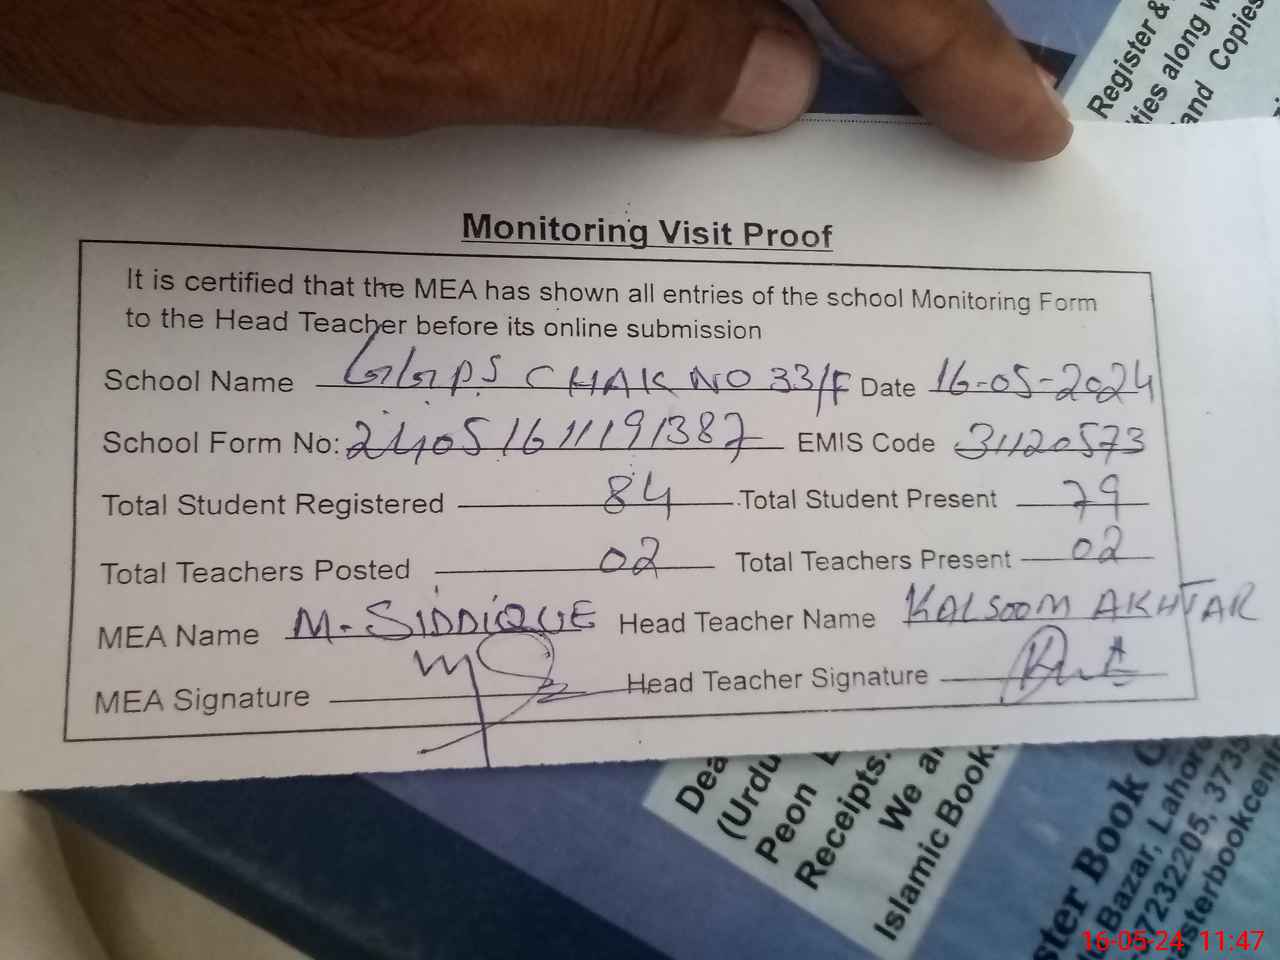 Register &
ties along w
and Copies
Monitoring Visit Proof
It is certified that the MEA has shown all entries of the school Monitoring Form
to the Head Teacher before its online submission
School Name GGPS CHAK NO 33/F Date 16-05-2024
School Form No: 240516111191387 EMIS Code 31120573
Total Student Registered 84 Total Student Present 79
Total Teachers Posted 02 Total Teachers Present 02
MEA Name M. SIDDIQUE Head Teacher Name KALSOOM AKHTAR
MEA Signature Head Teacher Signature
Dea
(Urdu
Peon
Receipts.
We ar
Islamic Book.
ster Book C
Bazar, Lahore
7232205, 3735
asterbookcent
16-05-24 11:47